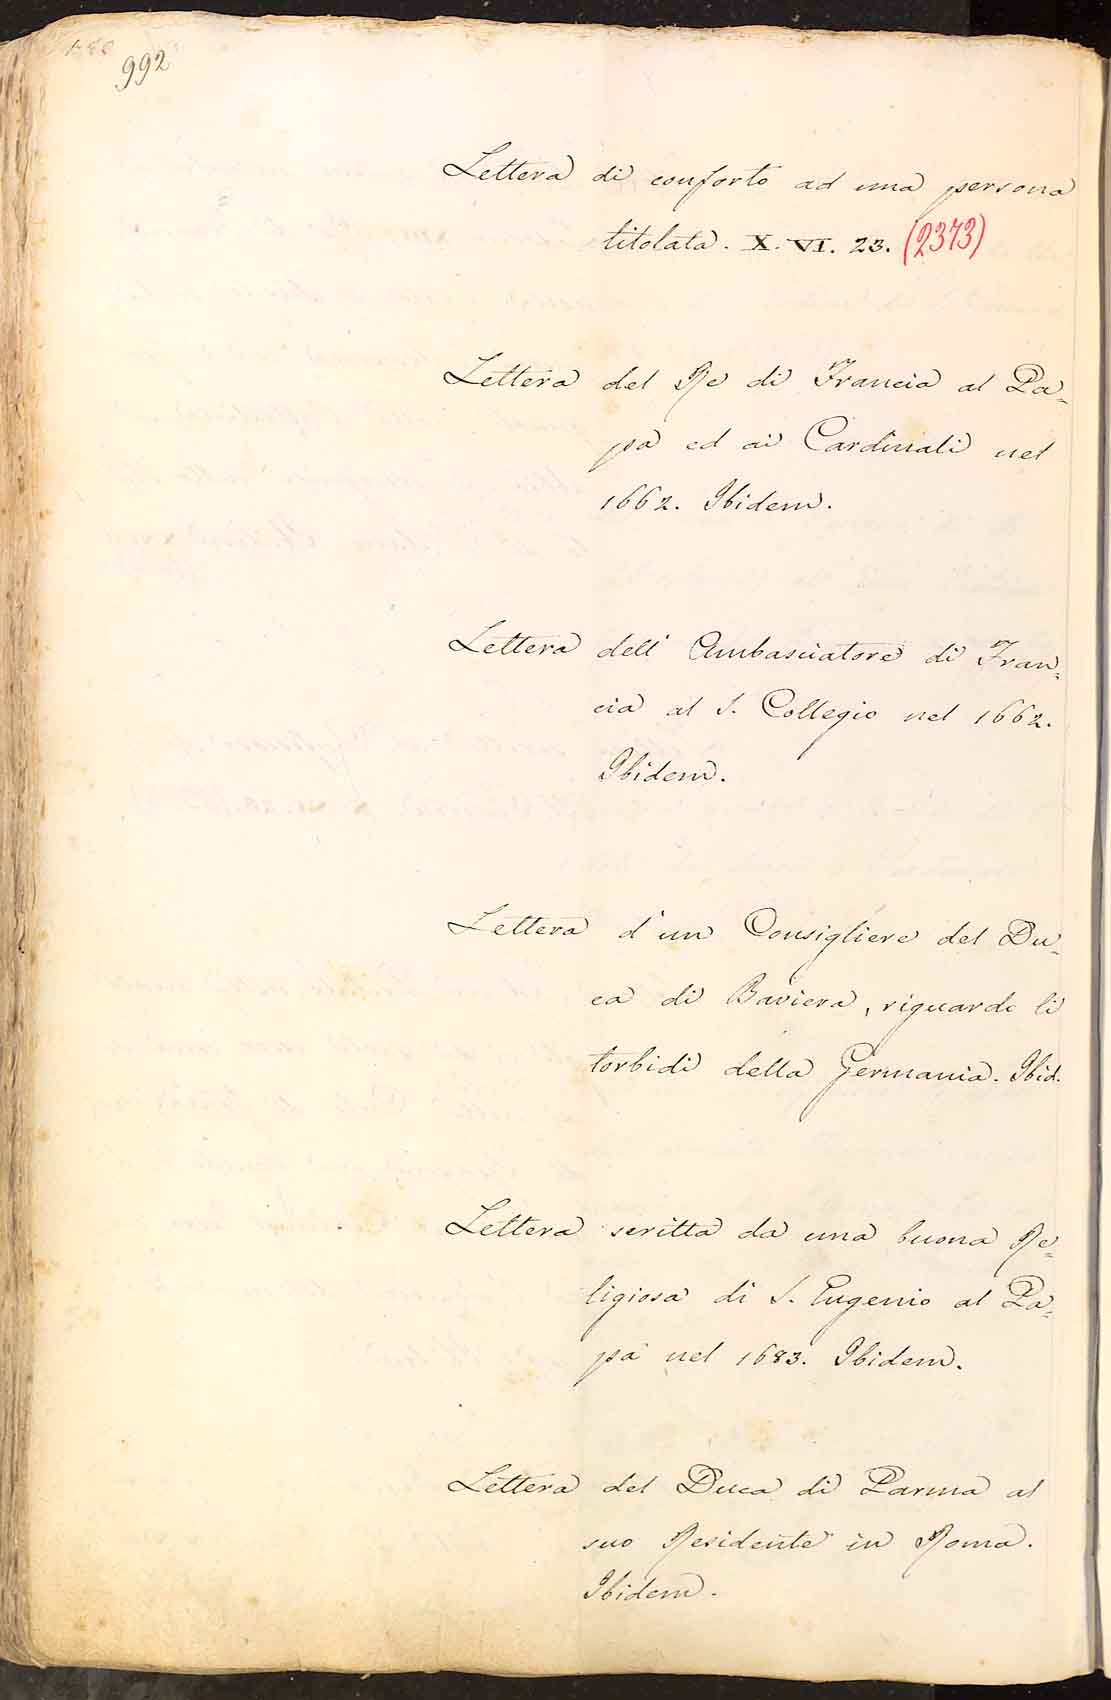 992
Lettera di conforto ad una persona
titolata. X. VI. 23. (2373)
Lettera del Re di Francia al Pa=
pa ed ai Cardinali nel
1662. Ibidem.
Lettera dell' Ambasciatore di Fran=
cia al S. Collegio nel 1662.
Ibidem.
Lettera d'un Consigliere del Du=
ca di Baviera, riguardo li
torbidi della Germania. Ibid.
Lettera scritta da una buona Re=
ligiosa di S. Eugenio al Pa=
pa nel 1683. Ibidem.
Lettera del Duca di Parma al
suo Residente in Roma.
Ibidem.